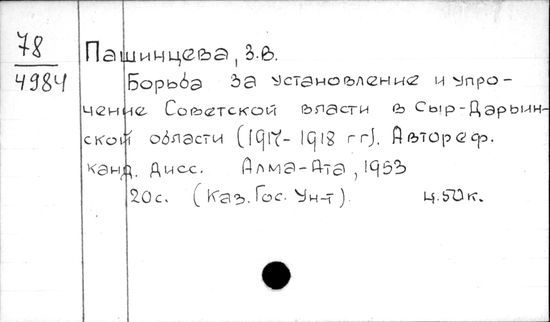 78
4984
Пашинцева, З.В.
Борьба за установление и упро-
чение Советской власти в Сыр-Дарьин-
ской области (1917-1918 гг). Автореф.
канд. дисс. Алма-Ата, 1953
20с. (Каз. Гос. Ун-т). ц.50к.